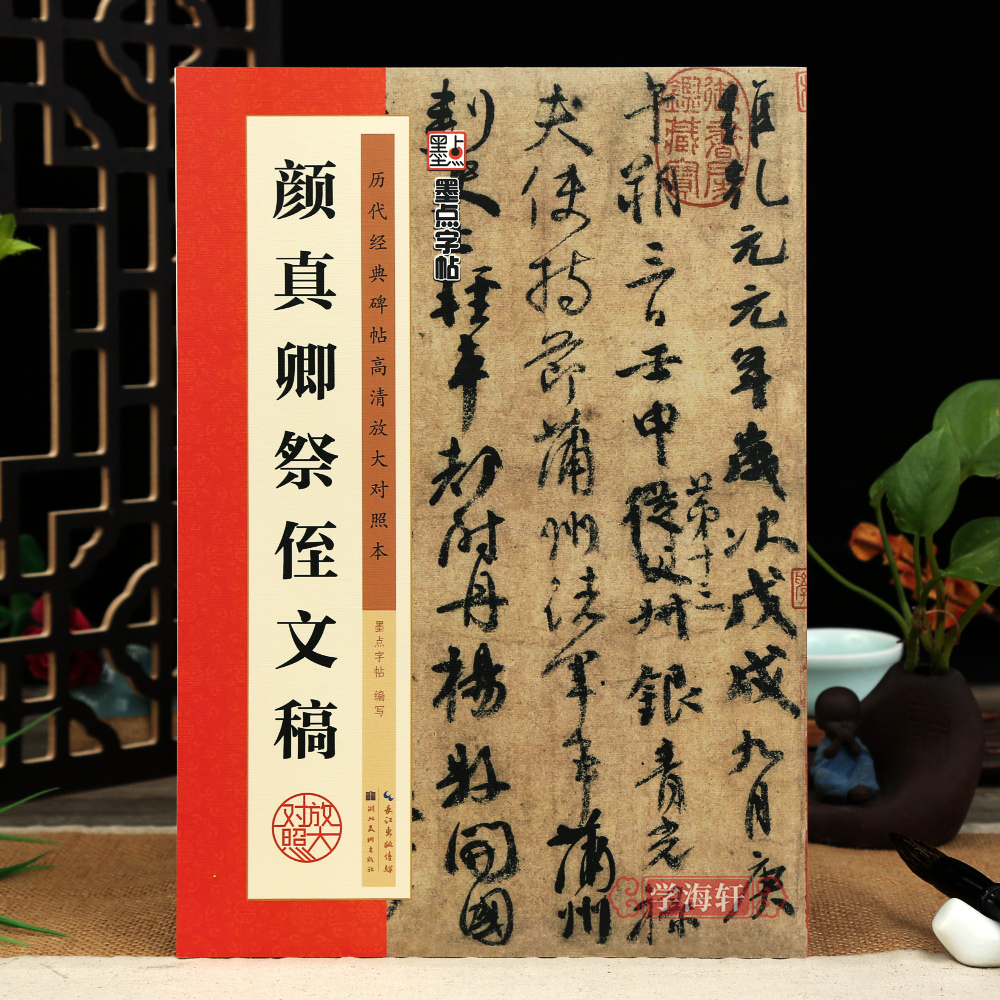 颜真卿祭侄文稿
放大
对照
历代经典碑帖高清放大对照本
墨点字帖 编写
长江出版传媒
湖北美术出版社
墨点
墨点字帖
維乾元元年歲次戊戌九月庚
午朔三日壬申從父叔銀青光祿
第十三
夫使持節蒲州諸軍事蒲州
刺史上輕車都尉丹楊縣開國
御書房
鑑藏寶
学海轩